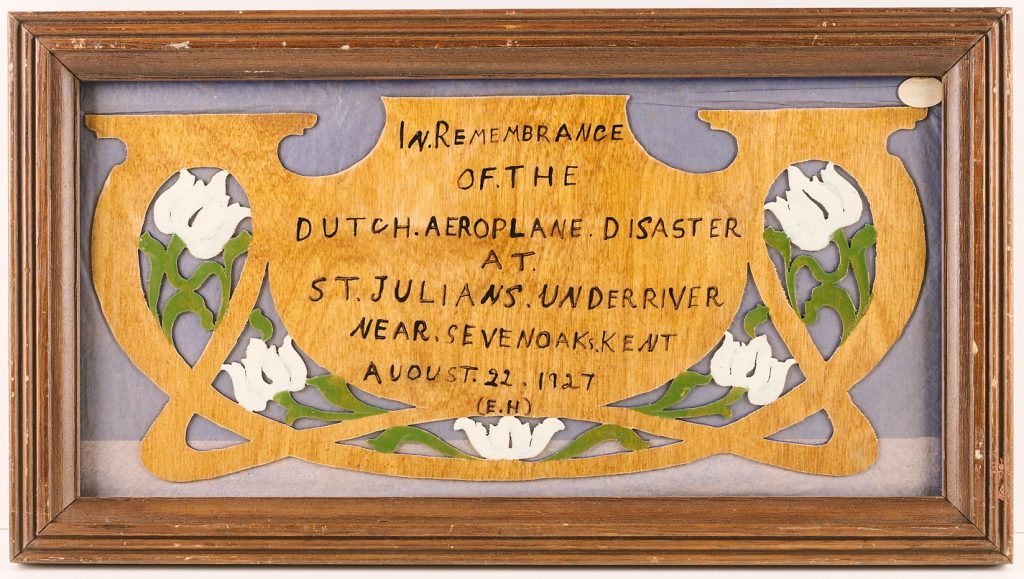 IN.REMEMBRANCE
OF.THE
DUTCH.AEROPLANE.DISASTER
AT.
ST.JULIANS.UNDERRIVER
NEAR.SEVENOAKS.KENT
AUOUST.22.1927
(E.H)